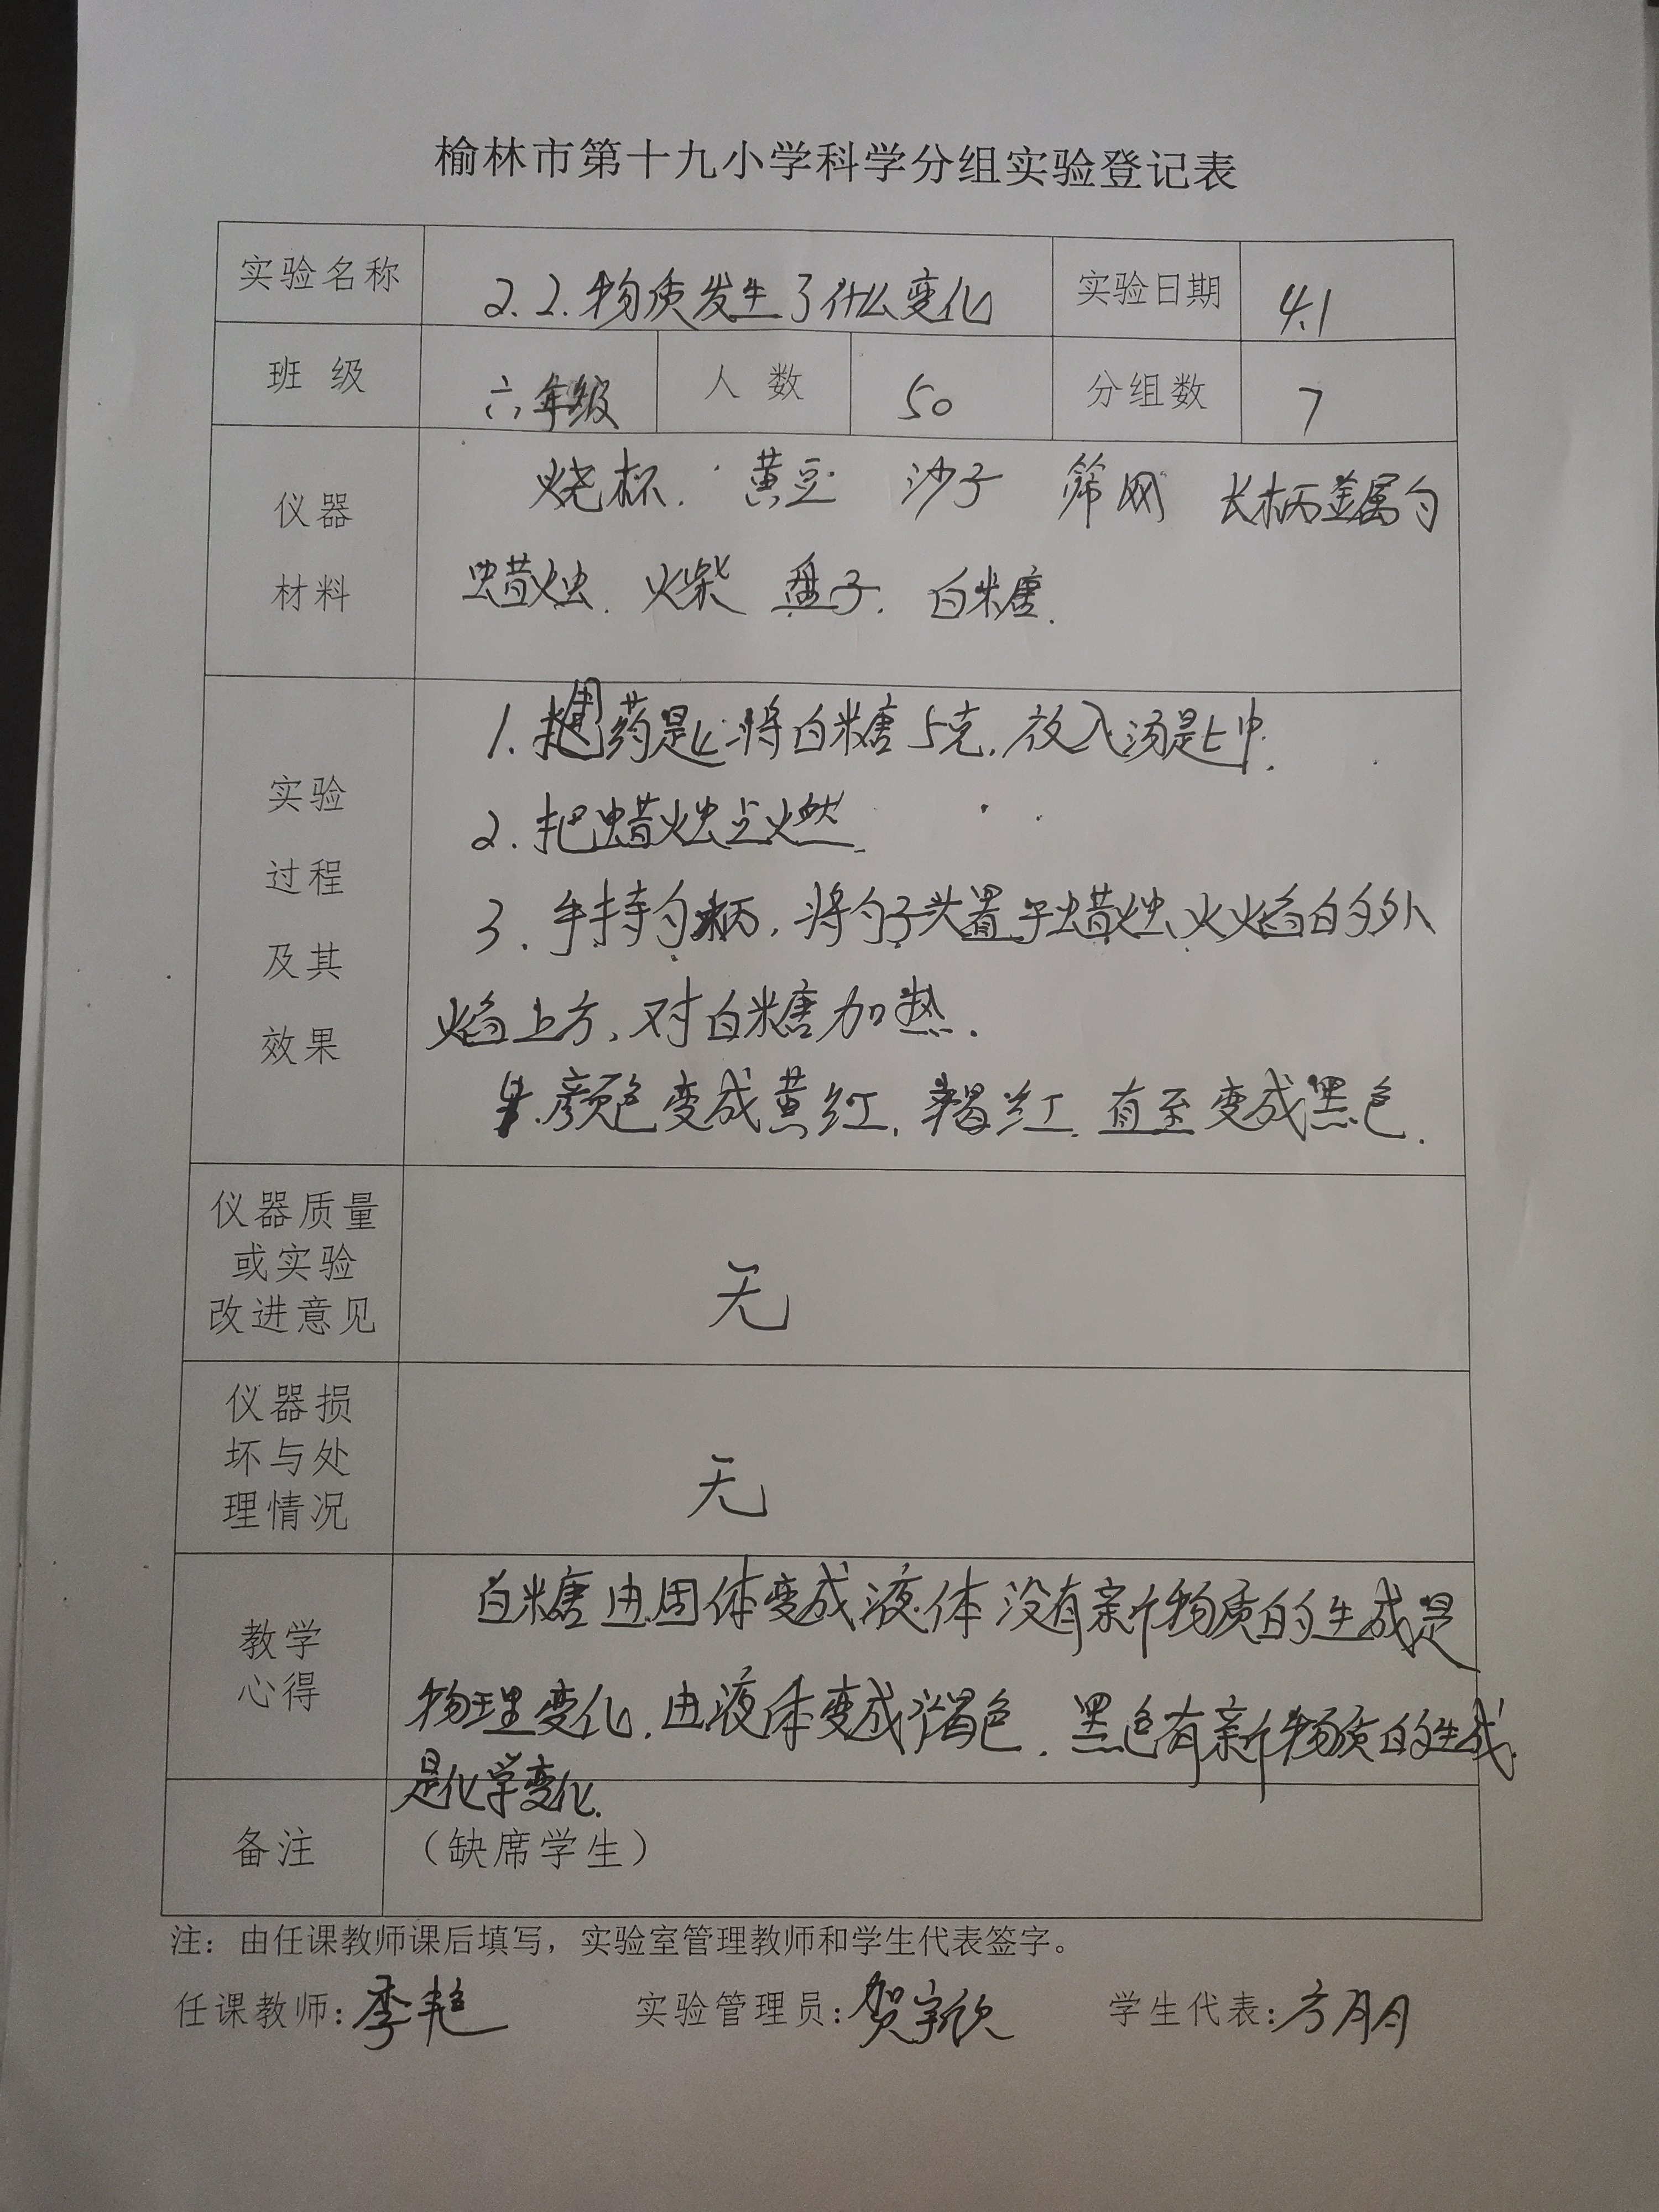 榆林市第十九小学科学分组实验登记表
实验名称 2.2.物质发生了什么变化 实验日期 4.1
班 级 六年级 人 数 50 分组数 7
仪器
材料
烧杯. 黄豆 沙子 筛网 长柄金属勺
蜡烛. 火柴 盘子. 白糖.
实验
过程
及其
效果
1. 药匙将白糖5克.放入汤匙中.
2.把蜡烛点燃.
3.手持勺柄,将勺子头置于蜡烛火焰的外
焰上方,对白糖加热.
4.颜色变成黄红,褐红.直至变成黑色.
仪器质量
或实验
改进意见
无
仪器损
坏与处
理情况
无
教学
心得
白糖由固体变成液体没有新物质的生成是
物理变化.由液体变成褐色.黑色有新物质的生成.
是化学变化.
备注 （缺席学生）
注：由任课教师课后填写，实验室管理教师和学生代表签字。
任课教师:李艳 实验管理员:贺宇欣 学生代表:方朋